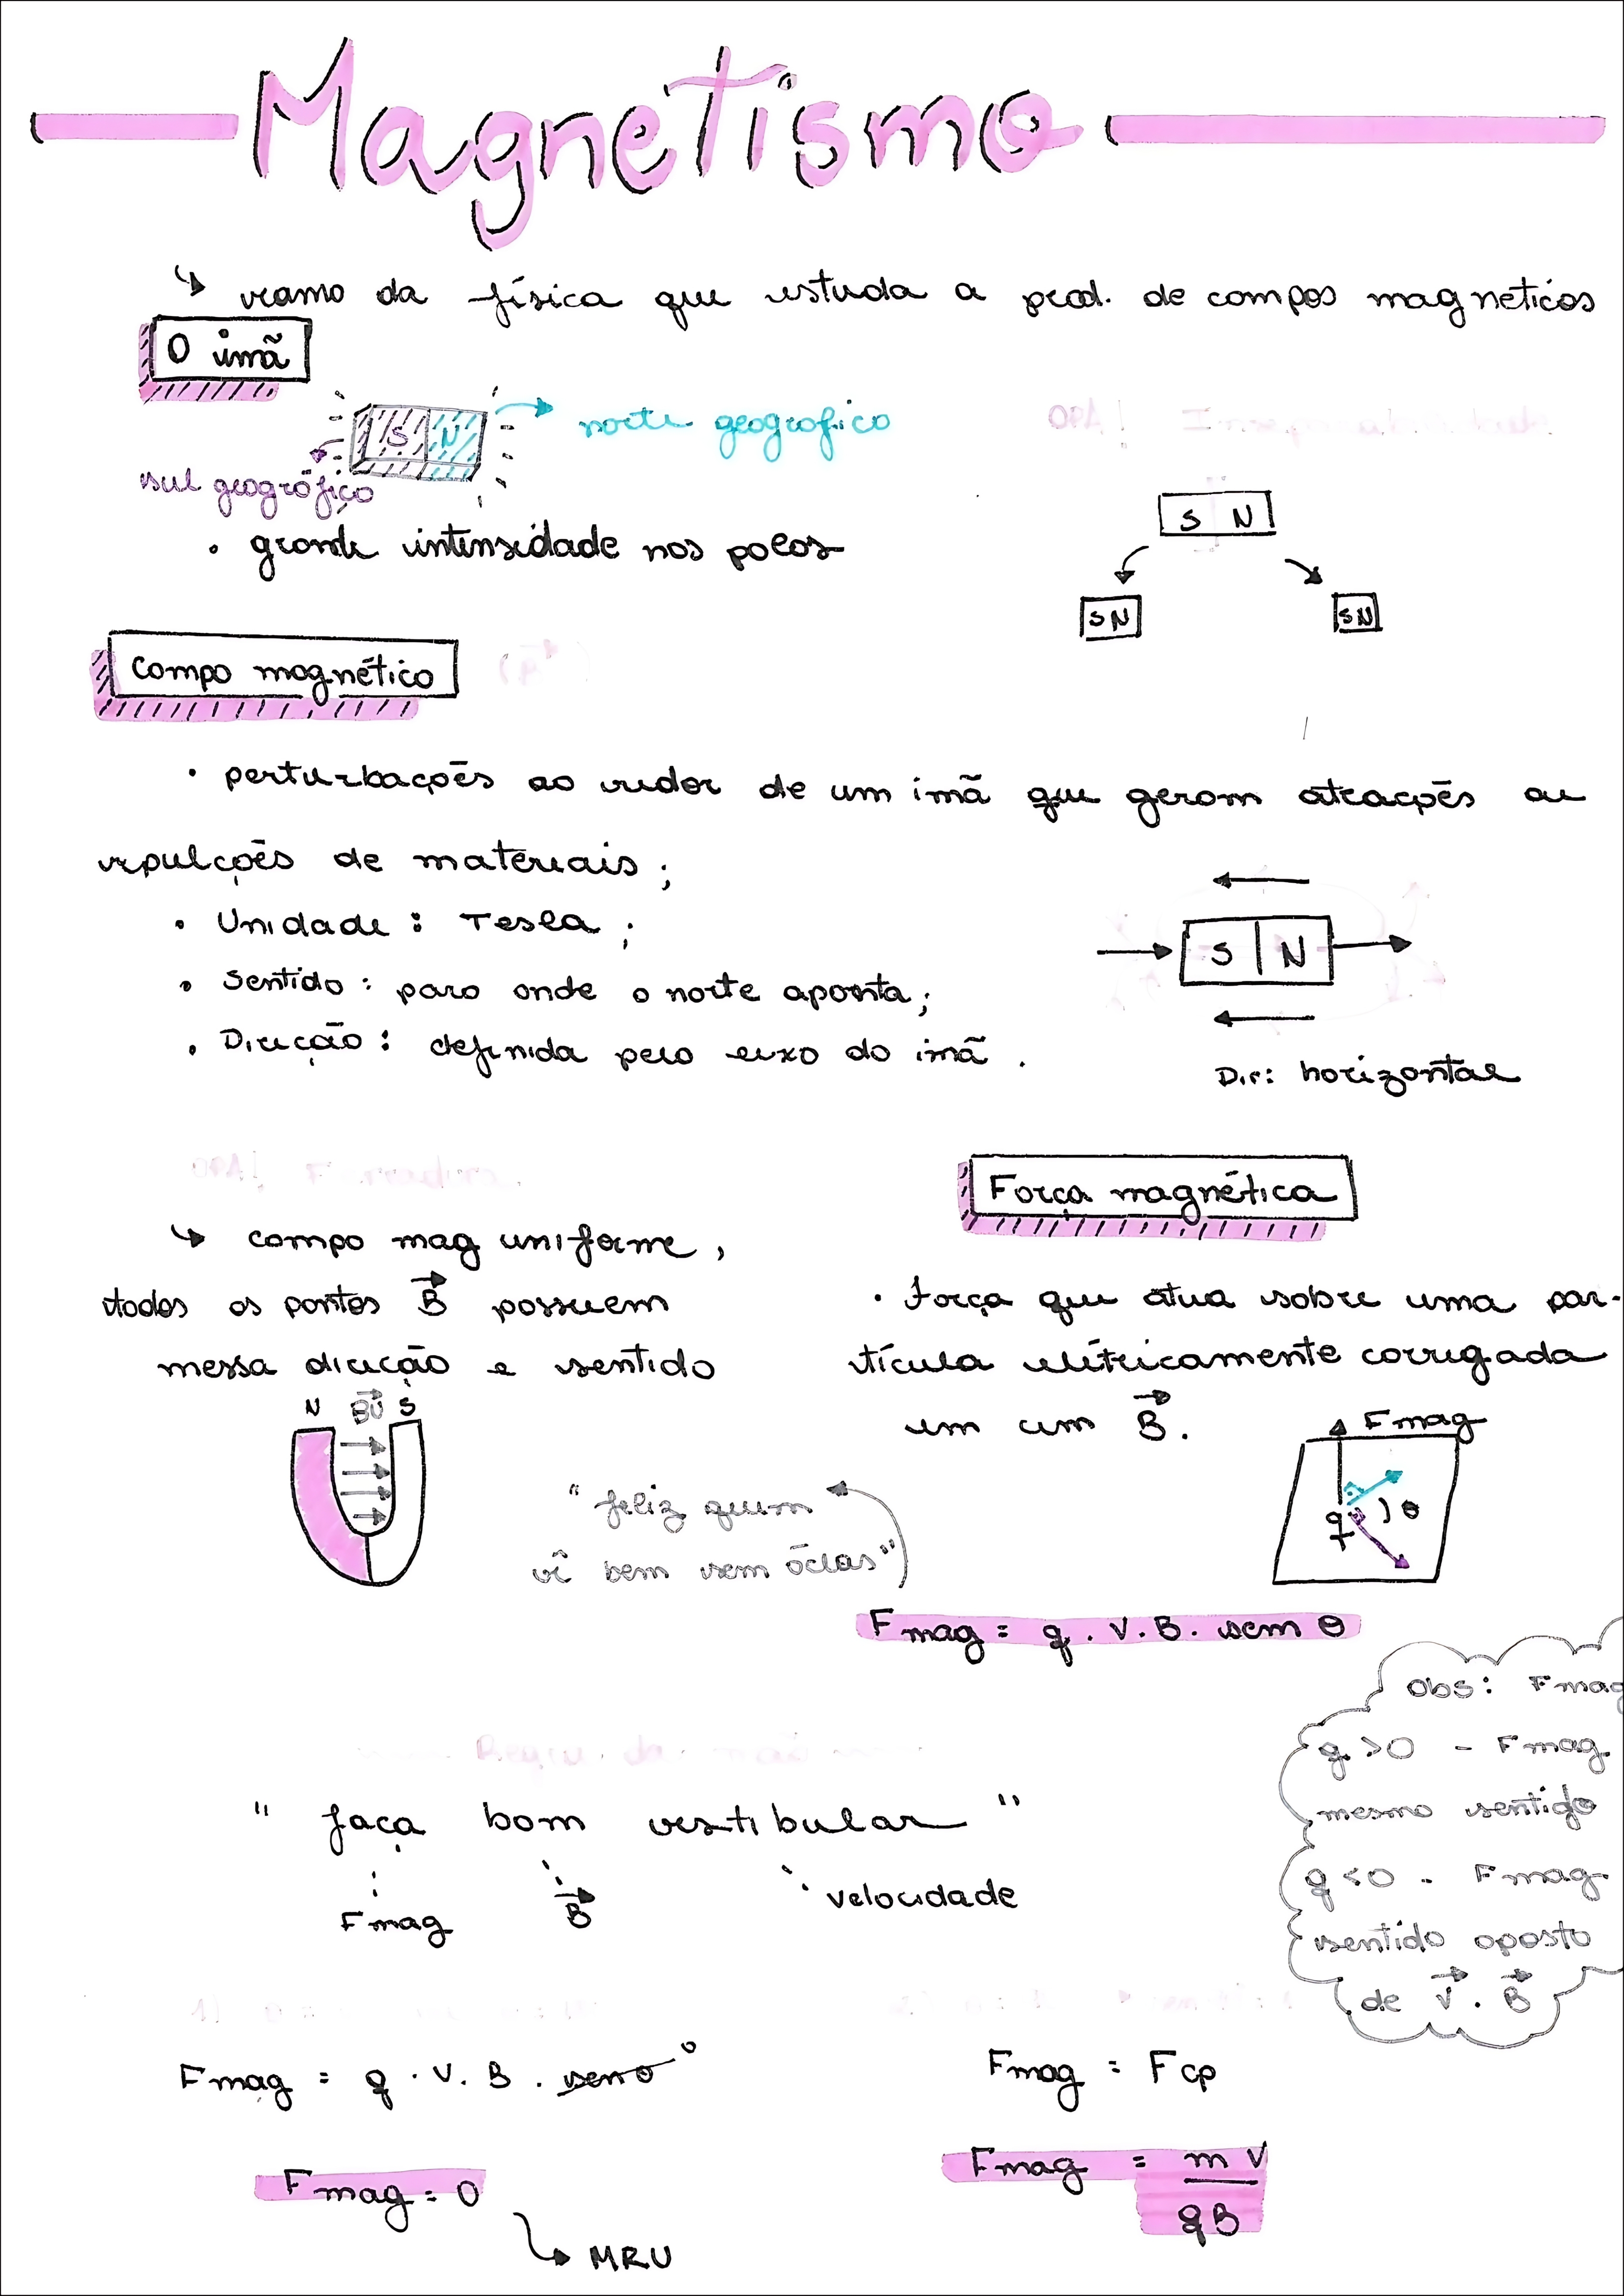 Magnetismo
↳ ramo da física que estuda a prod. de campos magneticos
O imã
S N → norte geografico
sul geográfico
• grande intensidade nos polos
OPA! Inseparabilidade
S N
SN SN
Campo magnético
• perturbações ao redor de um imã que geram atrações ou
repulções de materiais;
• Unidade: Tesla;
• Sentido: para onde o norte aponta;
• Direção: definida pelo eixo do imã.
S | N
Dir: horizontal
OPA!
↳ campo mag uniforme,
todos os pontos B possuem
messa direção e sentido
N BU S
Força magnética
• Força que atua sobre uma par-
tícula elétricamente carregada
em um B.
Fmag
q θ
"feliz quem
vê bem sem óclos"
Fmag = q . V. B. sem θ
obs: Fmag
q > 0 - Fmag.
mesmo sentido
q < 0 - Fmag.
sentido oposto
de V . B
Regra da mão
" faça bom vestibular "
Fmag B velocidade
Fmag = q . V. B . seno 0
Fmag = 0
↳ MRU
Fmag = Fcp
Fmag = m V
qB